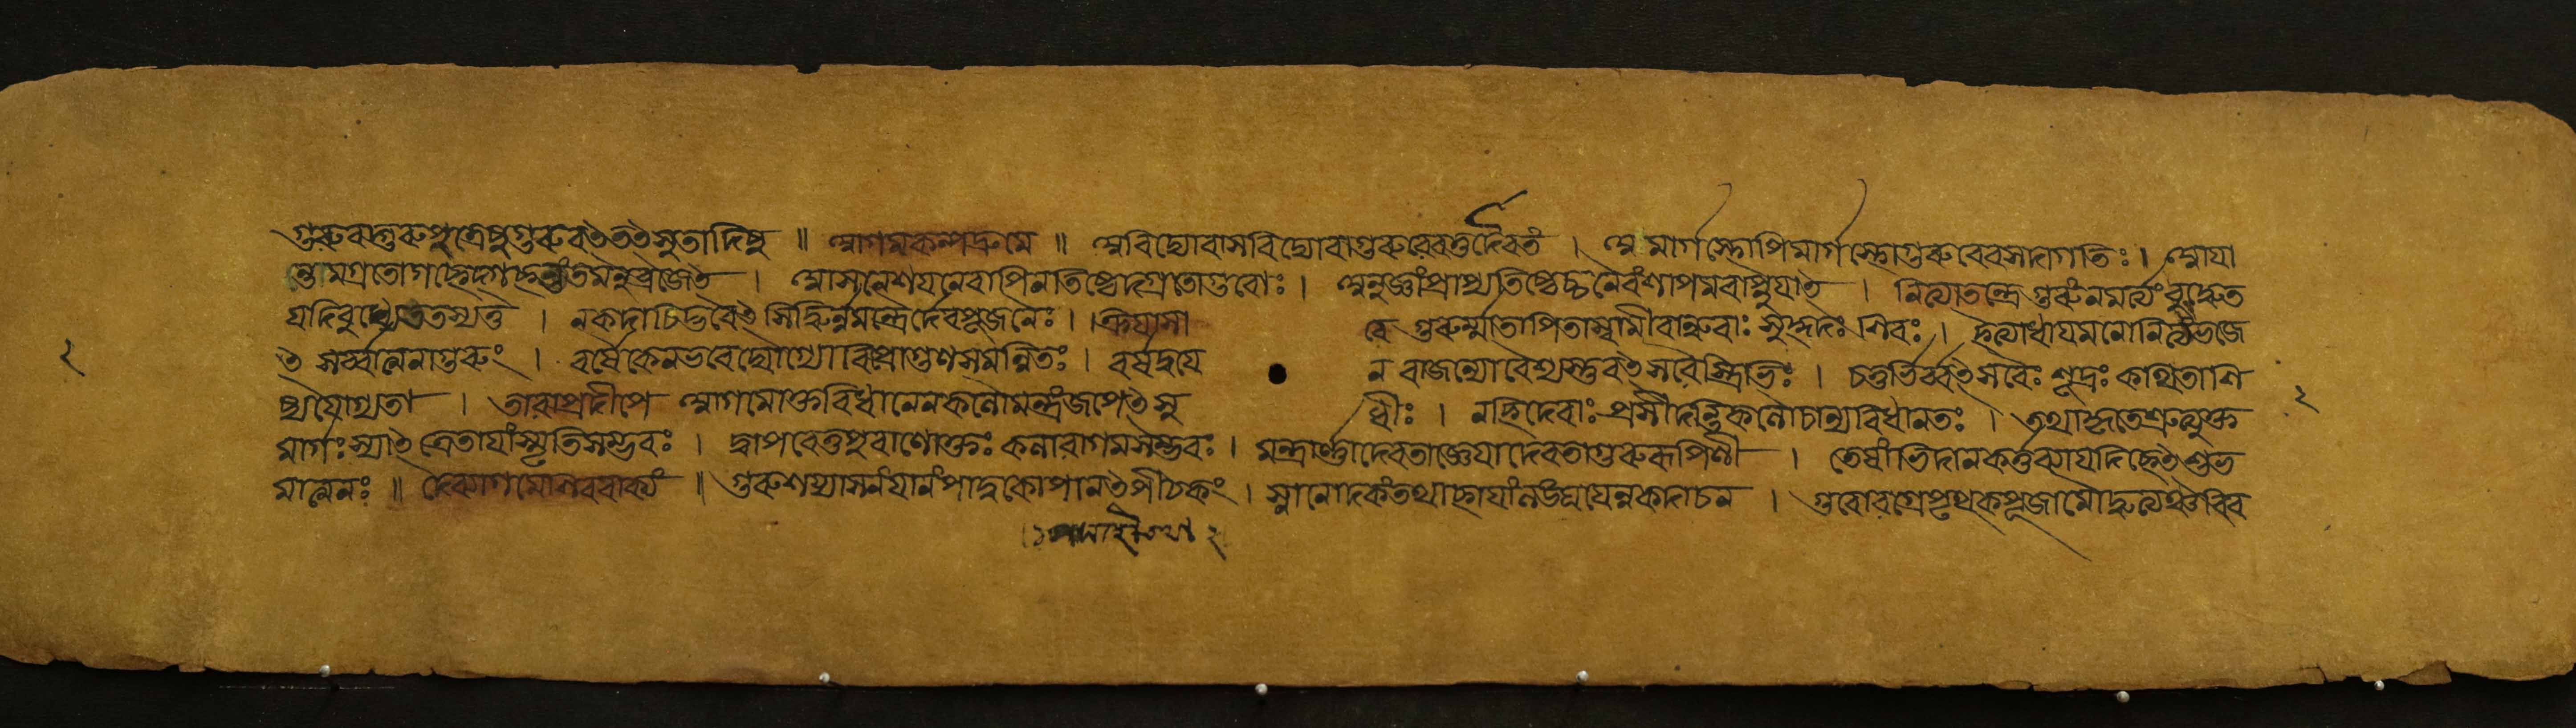 গুরুবদ্গুরুপুত্রেষু গুরুবৎ তৎসুতাদিষু ॥ আগমকল্পদ্রুমে ॥ অবিদ্যো বা সবিদ্যো বা গুরুরেব তু দৈবতং । অমার্গস্থোপি মার্গস্থো গুরুরেব সদা গতিঃ । আয়া
ন্তমগ্রতো গচ্ছেদ্গচ্ছন্তং তমনুব্রজেৎ । আসনে শয়নে বাপি ন তিষ্ঠেদগ্রতো গুরোঃ । অনুজ্ঞাং প্রাপ্য তিষ্ঠেচ্চ নৈবং শাপমবাপ্নুয়াৎ । নিত্যাতন্ত্রে গুরুং ন মর্ত্যং বুধ্যেত
যদি বুধ্যেত তস্য তু । ন কদাচিদ্ভবেৎ সিদ্ধির্ন মন্ত্রৈর্দেবপূজনৈঃ । ক্রিয়াসা
রে গুরুর্ম্মাতা পিতা স্বামী বান্ধবাঃ সুহৃদঃ শিবঃ । ইত্যাধায় মনো নিত্যং ভজে
ৎ সর্ব্বাত্মনা গুরুং । বর্ষৈকেন ভবেদ্যোগ্যো বিপ্রো গুণসমন্বিতঃ । বর্ষদ্বয়ে
ন রাজন্যো বৈশ্যস্তু বৎসরৈস্ত্রিভিঃ । চতুর্ভির্ব্বৎসরৈঃ শূদ্রঃ কথিতা শি
ষ্যযোগ্যতা । তারাপ্রদীপে আগমোক্তবিধানেন কলৌ মন্ত্রং জপেৎ সু
ধীঃ । ন হি দেবাঃ প্রসীদন্তি কলৌ চান্যবিধানতঃ ।
মার্গঃ স্যাৎ ত্রেতায়াং স্মৃতিসম্ভবঃ । দ্বাপরে তু পুরাণোক্তঃ কলাবাগমসম্ভবঃ । মন্ত্রার্ণা দেবতা জ্ঞেয়া দেবতা গুরুরূপিণী । তেষাং ভিদা ন কর্ত্তব্যা যদীচ্ছেৎ শুভ
মাত্মনঃ ॥ গুরুশয্যাসনং যানং পাদুকোপানৎপীঠকং । স্নানোদকং তথা ছায়াং লঙ্ঘয়েন্ন কদাচন । গুরোরগ্রে পৃথক্পূজামৌদ্ধত্যঞ্চ বিব
২
২